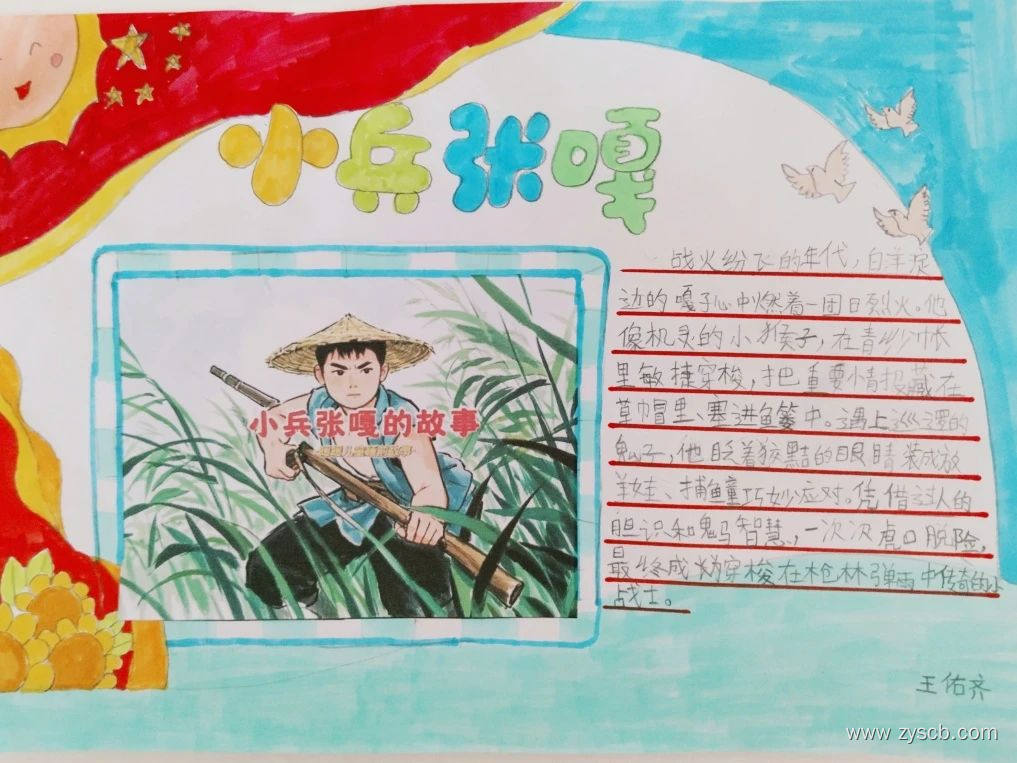 小兵张嘎
战火纷飞的年代，白洋淀
边的嘎子心中燃着一团日烈火。他
像机灵的小猴子，在青纱帐
里敏捷穿梭，把重要情报藏在
草帽里、塞进鱼篓中。遇上巡逻的
鬼子，他眨着狡黠的眼睛装成放
羊娃、捕鱼童巧妙应对。凭借过人的
胆识和智慧，一次次虎口脱险，
最终成为穿梭在枪林弹雨中传奇的小
战士。
小兵张嘎的故事
王佑齐
www.zyscb.com